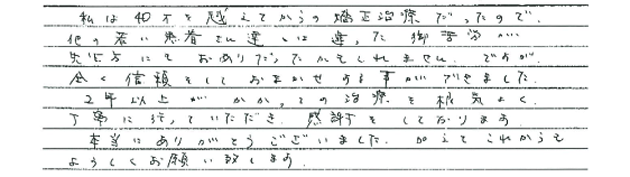 私は40才を越えてからの矯正治療だったので、
他の若い患者さん達とは違った御苦労が
先生方にもおありだったかもしれません。ですが
全く信頼をしておまかせする事ができました。
2年以上がかかっての治療を根気よく
丁寧に行っていただき、感謝をしております。
本当にありがとうございました。加えてこれからも
よろしくお願い致します。